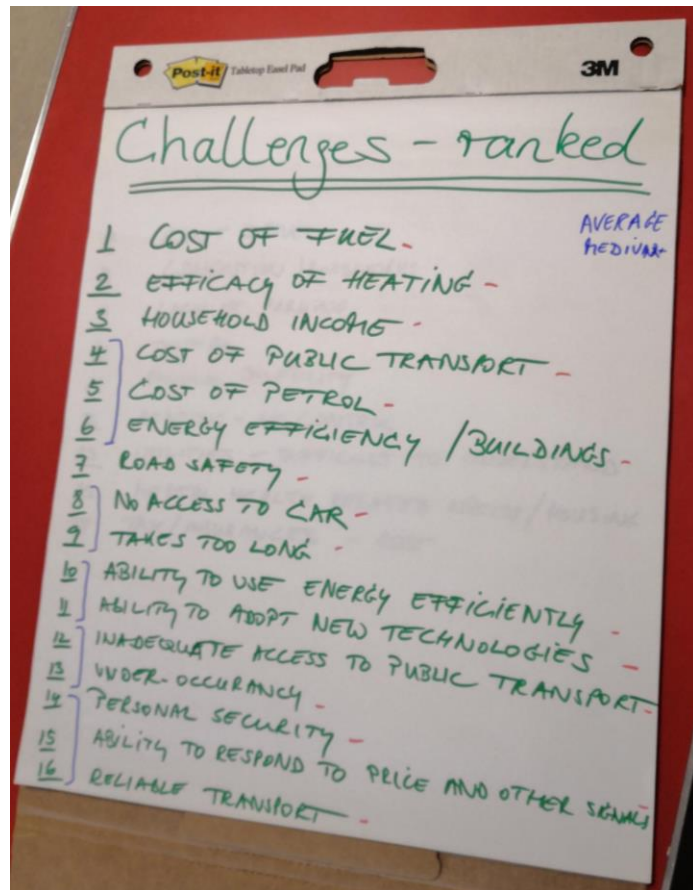 Post-it Tabletop Easel Pad
3M
Challenges - ranked
AVERAGE
MEDIUM
1 COST OF FUEL -
2 EFFICACY OF HEATING -
3 HOUSEHOLD INCOME -
4 COST OF PUBLIC TRANSPORT -
5 COST OF PETROL -
6 ENERGY EFFICIENCY / BUILDINGS -
7 ROAD SAFETY -
8 NO ACCESS TO CAR -
9 TAKES TOO LONG -
10 ABILITY TO USE ENERGY EFFICIENTLY -
11 ABILITY TO ADOPT NEW TECHNOLOGIES -
12 INADEQUATE ACCESS TO PUBLIC TRANSPORT -
13 UNDER-OCCUPANCY -
14 PERSONAL SECURITY -
15 ABILITY TO RESPOND TO PRICE AND OTHER SIGNALS
16 RELIABLE TRANSPORT -